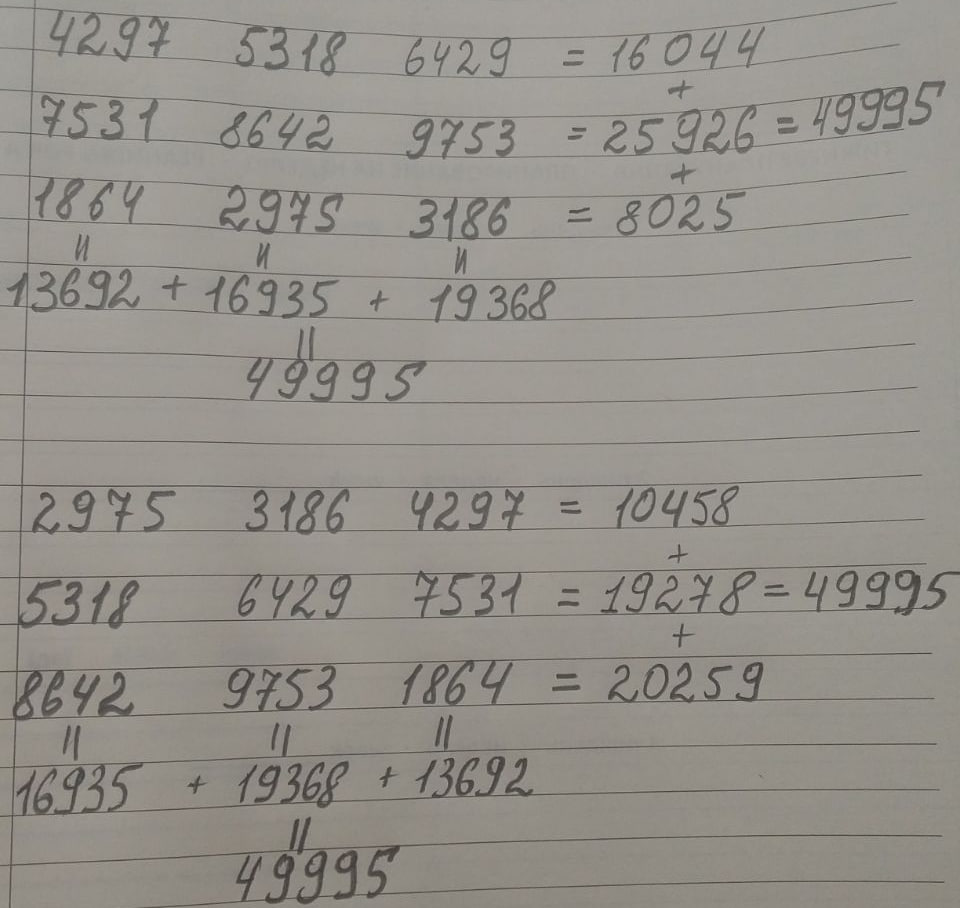 4297 5318 6429 = 16044
+
7531 8642 9753 = 25926 = 49995
+
1864 2975 3186 = 8025
॥ ॥ ॥
13692 + 16935 + 19368
॥
49995
2975 3186 4297 = 10458
+
5318 6429 7531 = 19278 = 49995
+
8642 9753 1864 = 20259
॥ ॥ ॥
16935 + 19368 + 13692
॥
49995